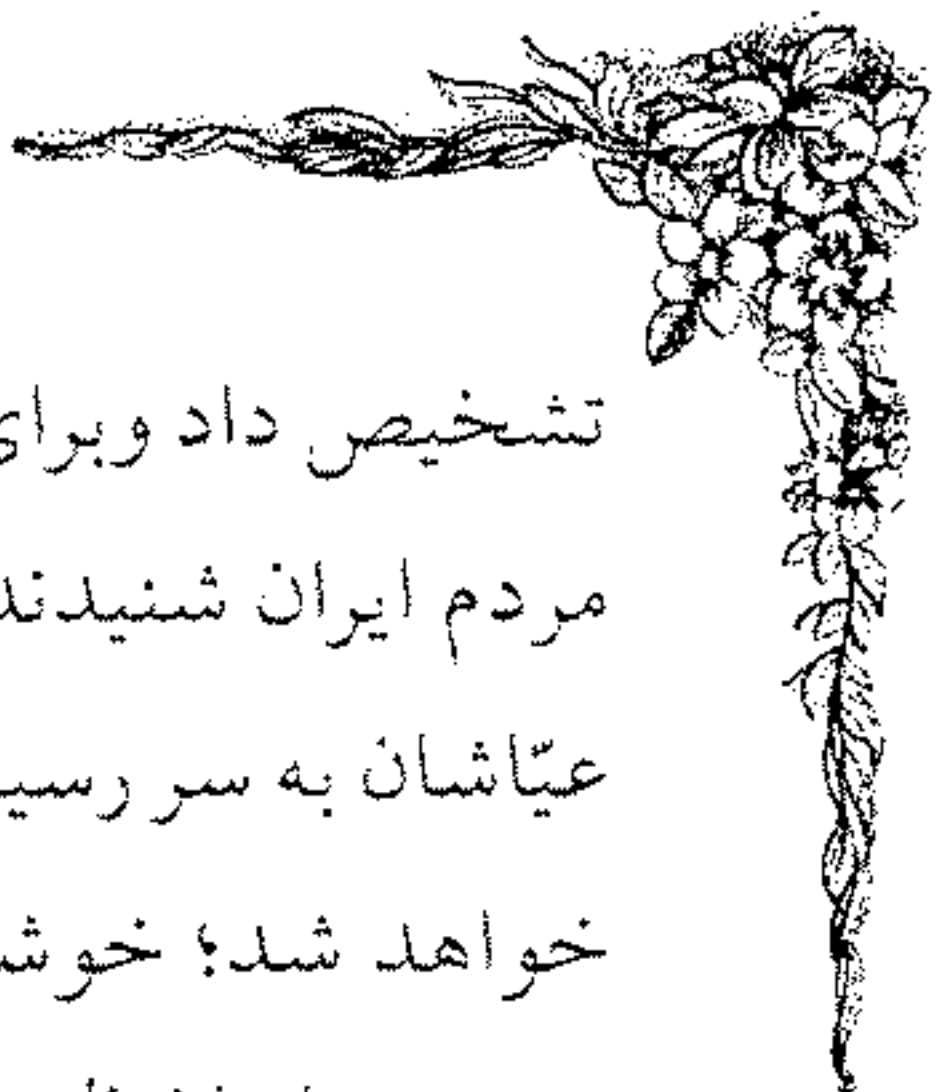 تشخیص داد وبرای
مردم ایران شنیدند
عیّاشان به سر رسید
خواهد شد؛ خوش